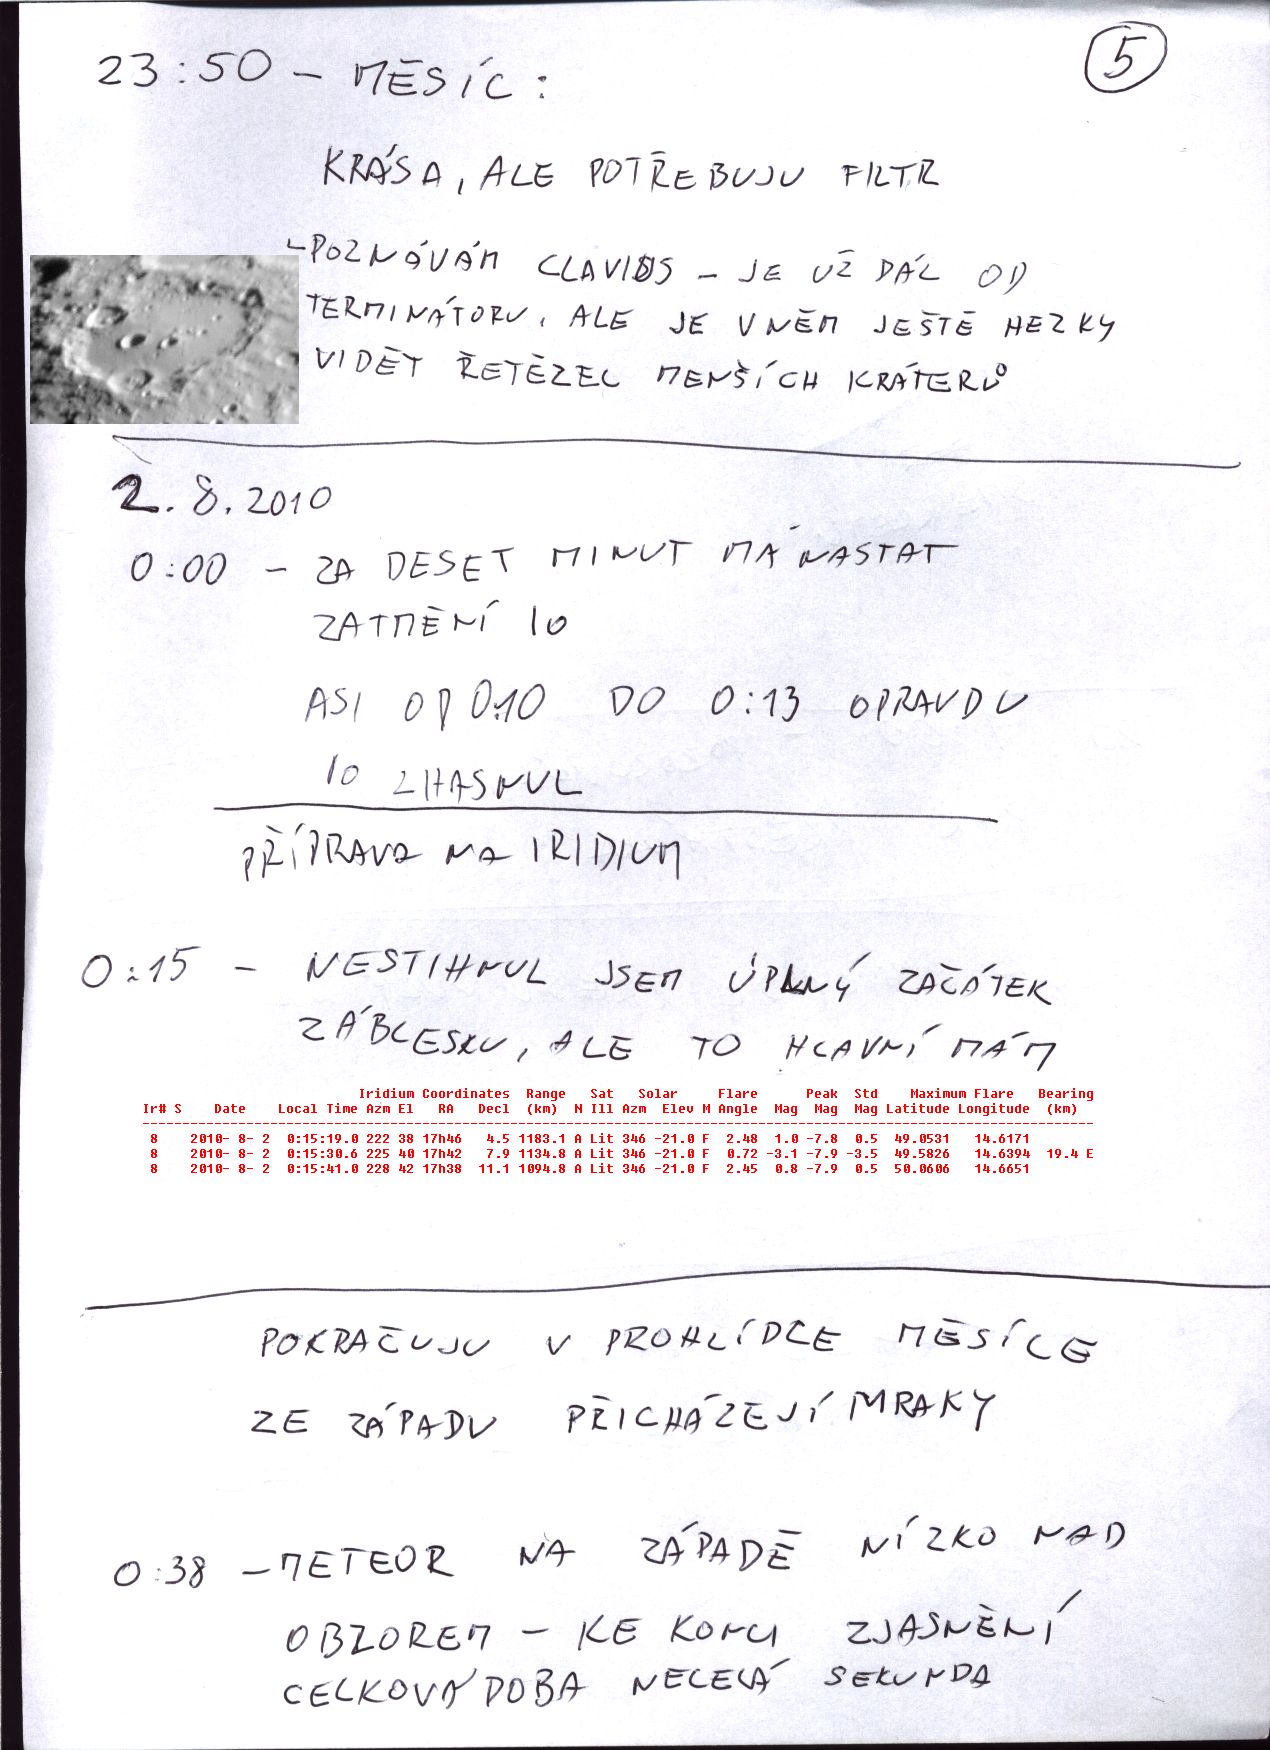 5
23:50 - MĚSÍC:
KRÁSA, ALE POTŘEBUJU FILTR
POZNÁVÁM CLAVIUS - JE UŽ DÁL OD
TERMINÁTORU, ALE JE V NĚM JEŠTĚ HEZKY
VIDĚT ŘETĚZEC MENŠÍCH KRÁTERŮ
2.8.2010
0:00 - ZA DESET MINUT MÁ NASTAT
ZATMĚNÍ IO
ASI OD 0:10 DO 0:13 OPRAVDU
IO ZHASNUL
PŘÍPRAVA NA IRIDIUM
0:15 - NESTIHNUL JSEM ÚPLNÝ ZAČÁTEK
ZÁBLESKU, ALE TO HLAVNÍ MÁM
Iridium Coordinates Range Sat Solar Flare Peak Std Maximum Flare Bearing
Ir# S Date Local Time Azm El RA Decl (km) N Ill Azm Elev M Angle Mag Mag Mag Latitude Longitude (km)
8 2010- 8- 2 0:15:19.0 222 38 17h46 4.5 1183.1 A Lit 346 -21.0 F 2.48 1.0 -7.8 0.5 49.0531 14.6171
8 2010- 8- 2 0:15:30.6 225 40 17h42 7.9 1134.8 A Lit 346 -21.0 F 0.72 -3.1 -7.9 -3.5 49.5826 14.6394 19.4 E
8 2010- 8- 2 0:15:41.0 228 42 17h38 11.1 1094.8 A Lit 346 -21.0 F 2.45 0.8 -7.9 0.5 50.0606 14.6651
POKRAČUJU V PROHLÍDCE MĚSÍCE
ZE ZÁPADU PŘICHÁZEJÍ MRAKY
0:38 - METEOR NA ZÁPADĚ NÍZKO NAD
OBZOREM - KE KONCI ZJASNĚNÍ
CELKOVÁ DOBA NECELÁ SEKUNDA